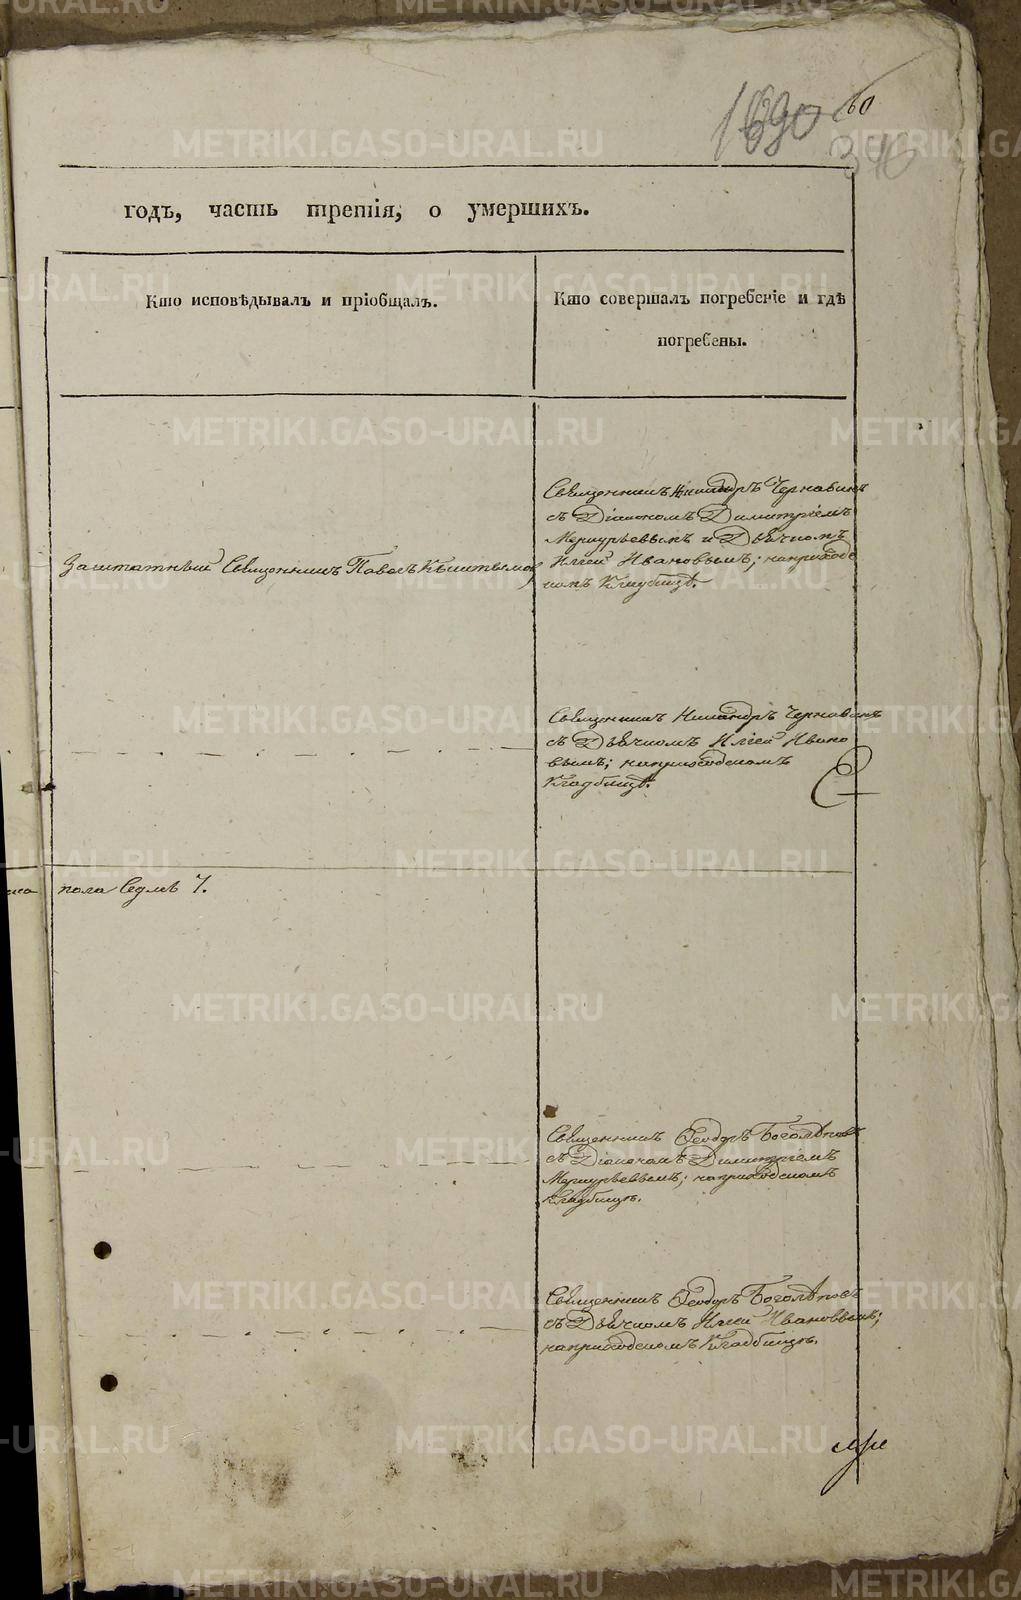 1690 60
340
годъ, часть третія, о умершихъ.
Кто исповѣдывалъ и пріобщалъ.
Кто совершалъ погребеніе и гдѣ
погребены.
Священникъ Никандръ Чернавинъ
съ Діакономъ Димитріемъ
Меркурьевымъ и Дьячкомъ
Заштатный Священникъ Павелъ
Иліей Ивановымъ; наприходс
комъ Кладбищѣ.
Священникъ Никандръ Чернавинъ
съ Дьячкомъ Иліей Ивано
вымъ; наприходскомъ
Кладбищѣ.
пола Седмь 7.
Священникъ Ѳеодоръ Боголѣповъ
съ Діакономъ Димитріемъ
Меркурьевымъ; наприходскомъ
Кладбищѣ.
Священникъ Ѳеодоръ Боголѣповъ
съ Дьячкомъ Иліей Ивановымъ;
наприходскомъ Кладбищѣ.
METRIKI.GASO-URAL.RU